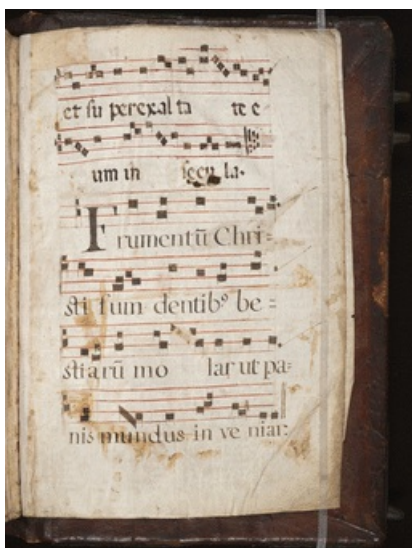 et su perexal ta te e
um in secu la.
Frumentū Chri=
sti sum dentibꝰ be=
stiarū mo lar ut pa=
nis mundus in ve niar.